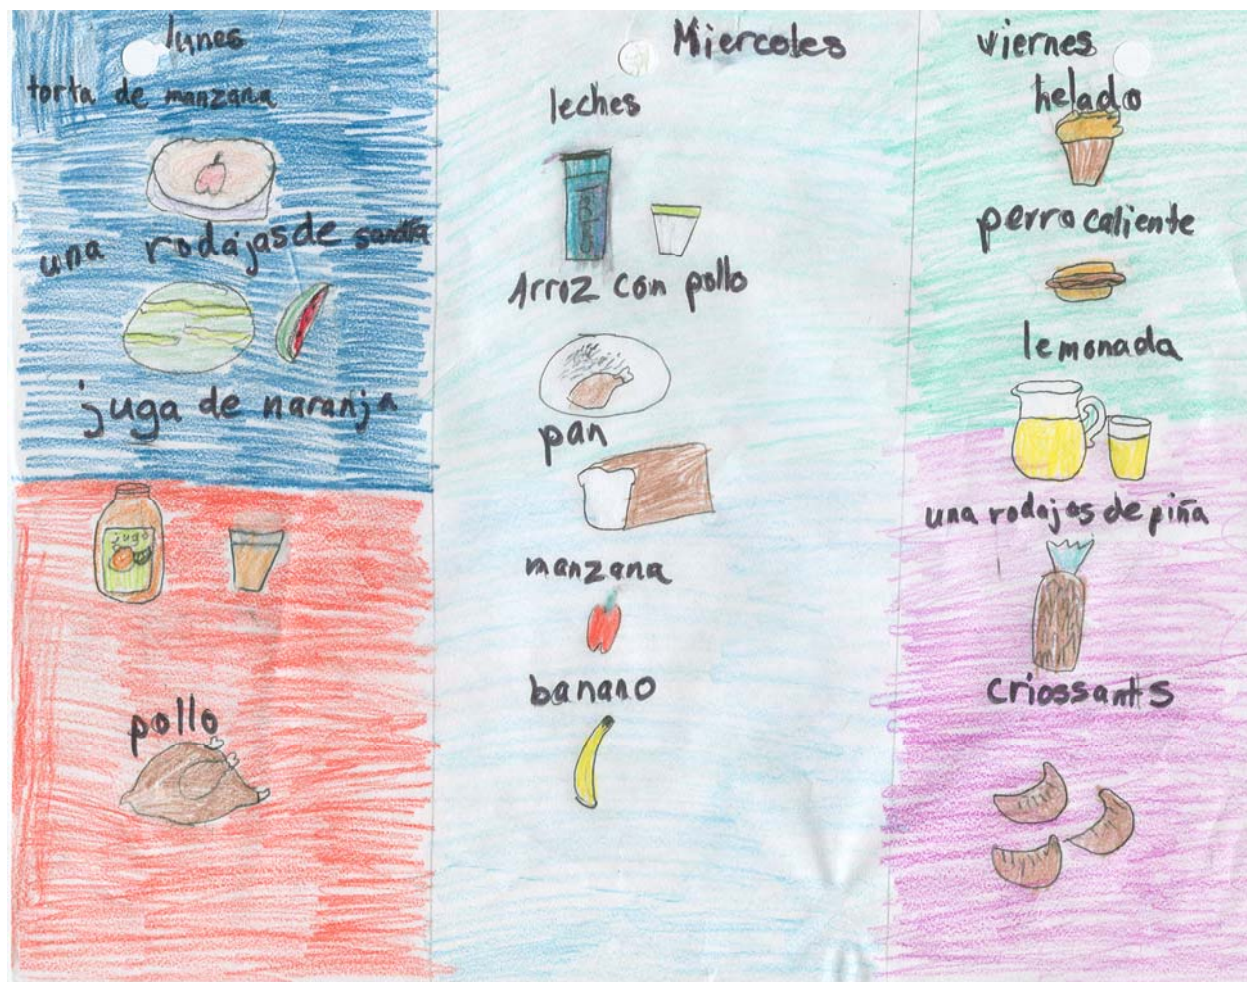 lunes
torta de manzana
una rodajas de sandía
juga de naranja
jugo
pollo
Miercoles
leches
Arroz con pollo
pan
manzana
banano
viernes
helado
perro caliente
lemonada
una rodajas de piña
criossants